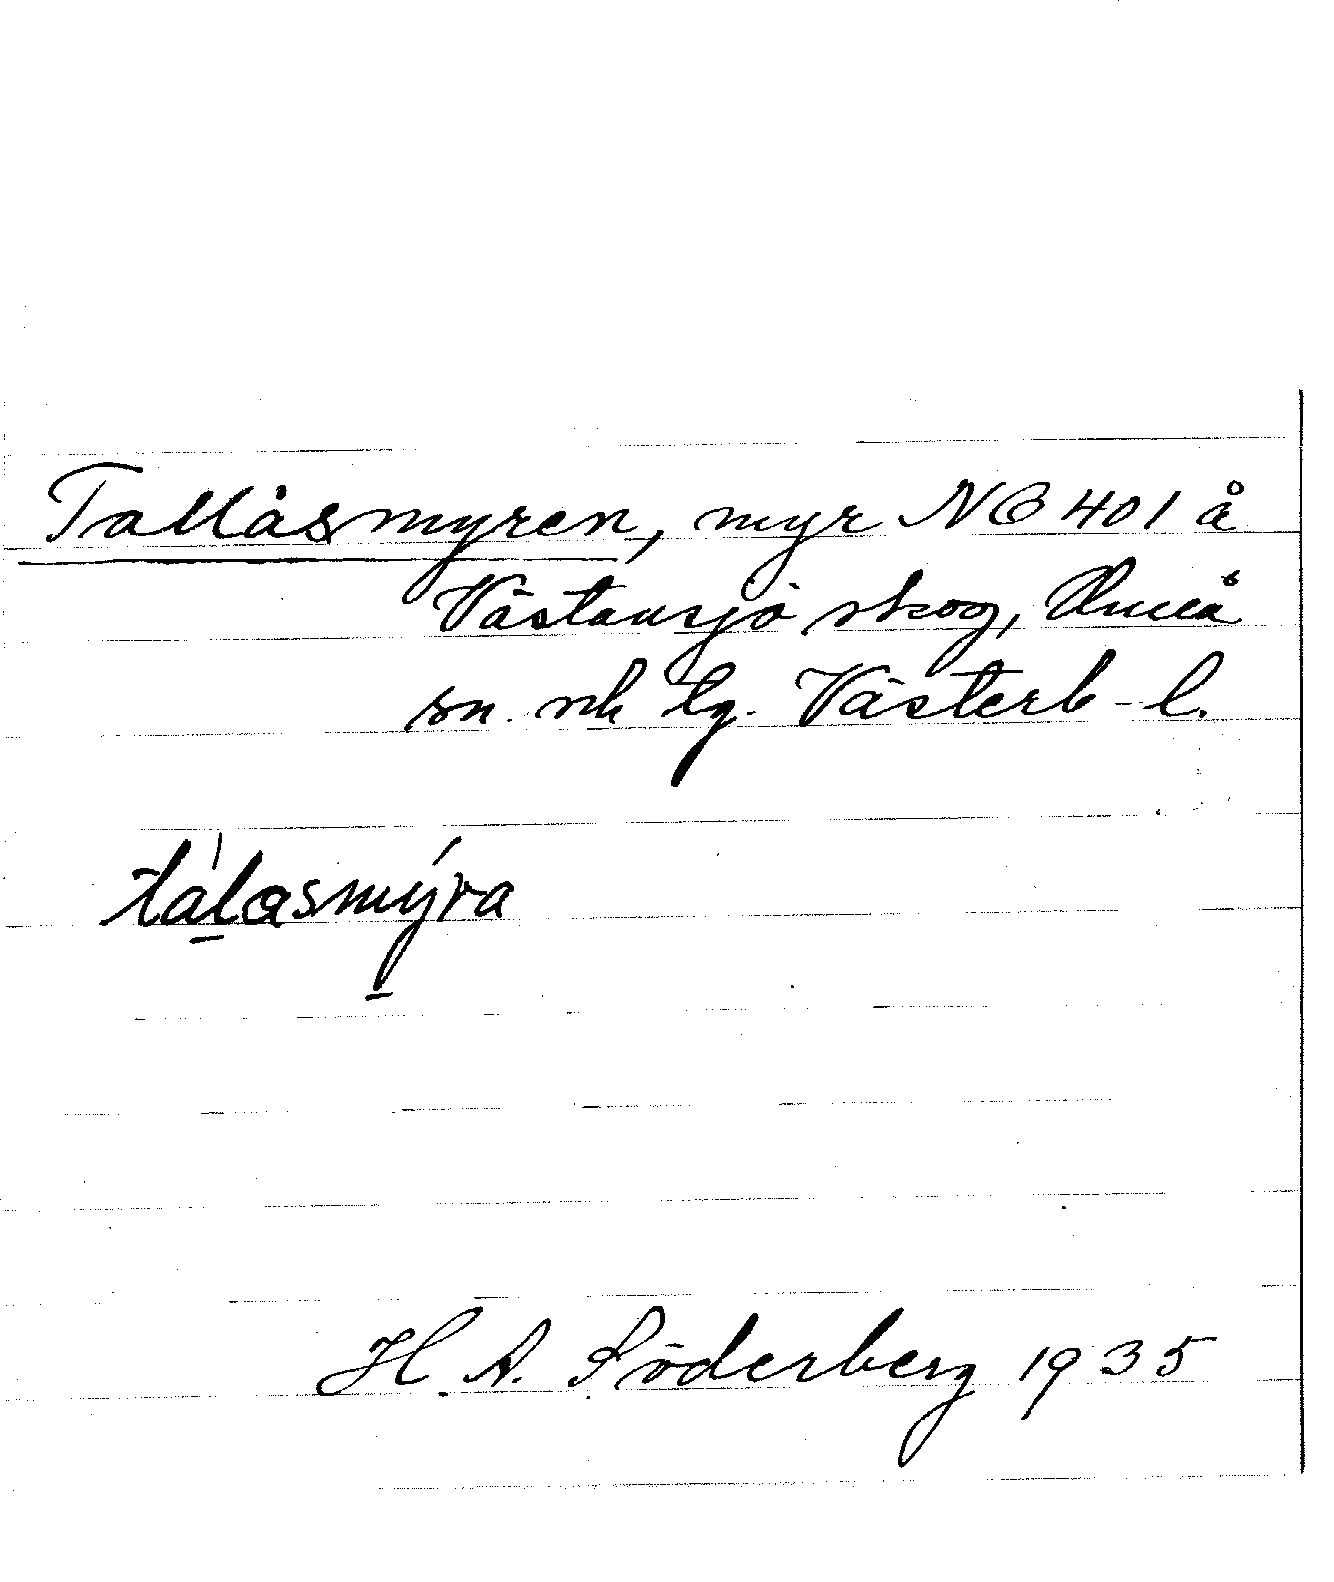 Tallåsmyren, myr NO 401 å
Västansjö skog, Umeå
sn. o lg. Västerb-l.
tálasmýra
H. A. Söderberg 1935